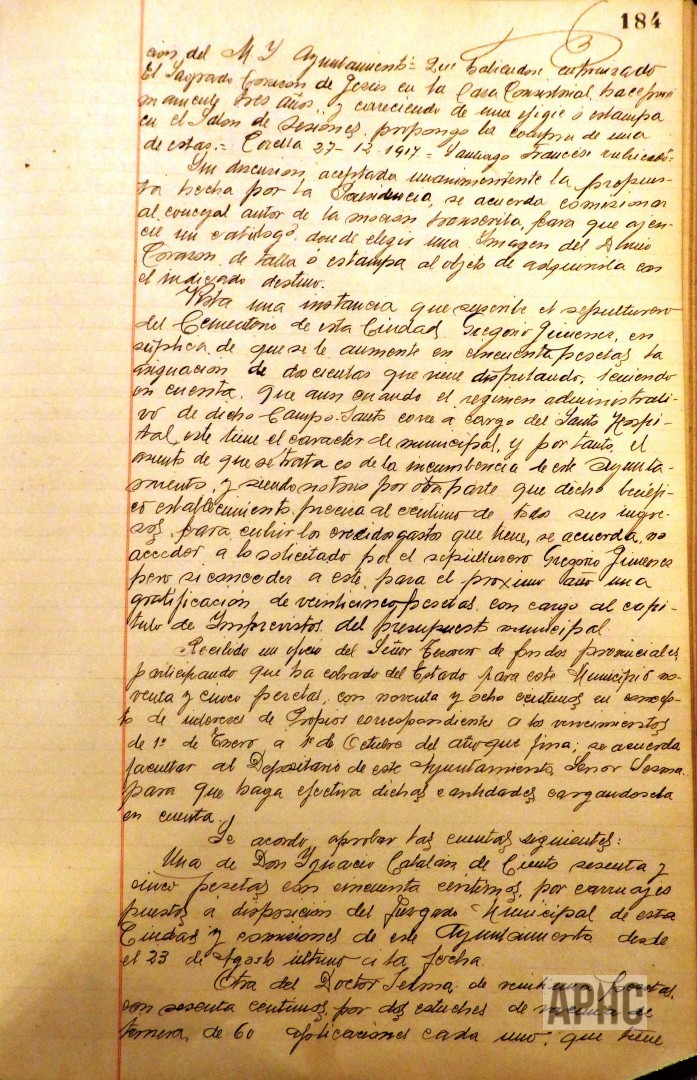 184
cion del M Y Ayuntamientº= Que habiendose entronizado
El Sagrado Corazon de Jesus en la Casa Consistorial, hace proxi
mamente tres años, y careciendo de una efigie ó estampa
en el Salon de sesiones, propongo la compra de una
de estas.= Corella 27-12-1917= Santiago Francés rubricado"
Sin discusion, aceptada unanimemente la propues-
ta hecha por la Presidencia, se acuerda comisionar
al concejal autor de la mocion transcrita, para que agen-
cie un catálogo donde elegir una Imagen del Divino
Corazon de talla ó estampa al objeto de adquirirla con
el indicado destino.
Vista una instancia que suscribe el sepulturero
del Cementerio de esta Ciudad, Gregorio Jimenez, en
súplica de que se le aumente en cincuenta pesetas la
asignacion de doscientas que viene disfrutando, teniendo
en cuenta, que aun cuando el regimen administrati-
vo de dicho Campo-Santo corre a cargo del Santo Hospi-
tal, este tiene el caracter de municipal, y por tanto, el
asunto de que se trata es de la incumbencia de este Ayunta-
miento, y siendo notorio por otra parte que dicho benéfi-
co establecimiento, precisa al centimo de todos sus ingre-
sos, para cubrir los crecidos gastos que tiene, se acuerda no
acceder a lo solicitado por el sepulturero Gregorio Jimenez
pero si conceder a este, para el proximo año una
gratificación de veinticinco pesetas con cargo al capi-
tulo de Imprevistos del presupuesto municipal.
Recibido un oficio del Señor Tesorero de fondos provinciales,
participando que ha cobrado del Estado para este Municipio no-
venta y cinco pesetas, con noventa y ocho centimos en concep-
to de intereses de Propios correspondientes a los vencimientos
de 1º de Enero a 1º de Octubre del año que fina; se acuerda
facultar al Depositario de este Ayuntamiento, Señor Sesma
para que haga efectiva dichas cantidades cargandosela
en cuenta.
Se acordó aprobar las cuentas siguientes:
Una de Don Ygnacio Catalán de Ciento sesenta y
cinco pesetas con cincuenta centimos, por carruajes
puestos a disposicion del Juzgado Municipal de esta
Ciudad y comisiones de este Ayuntamiento desde
el 23 de Agosto último a la fecha.
Otra del Doctor de pesetas
con sesenta centimos por dos estuches de vacuna de
ternera, de 60 aplicaciones cada uno; que tiene
APHC